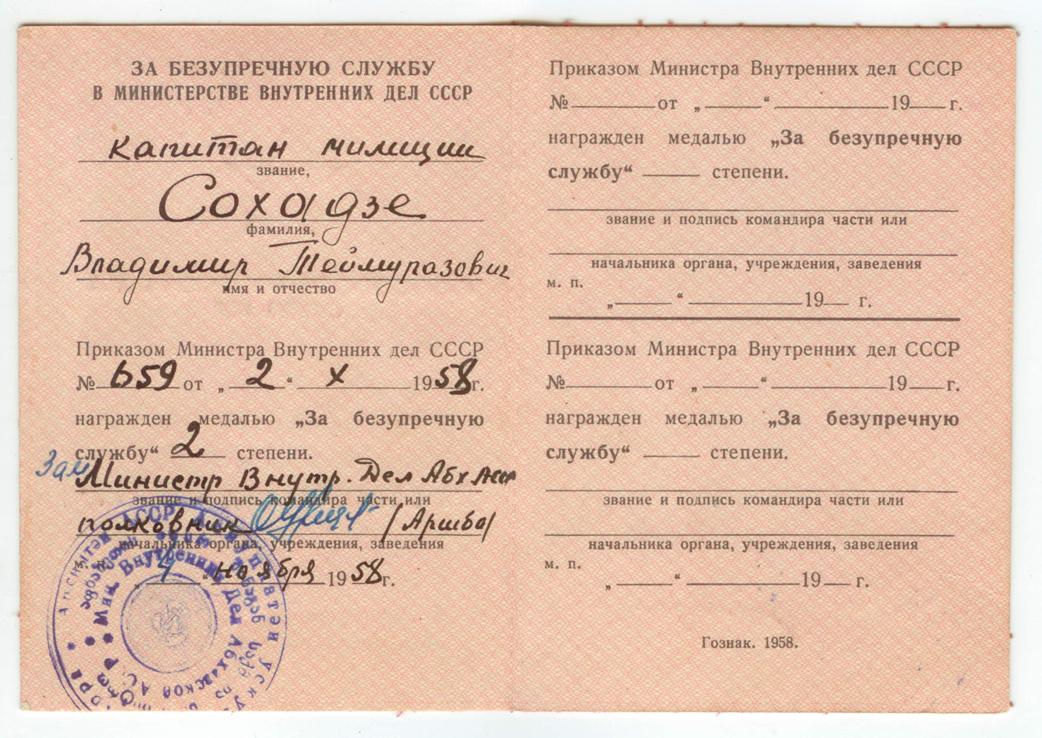 ЗА БЕЗУПРЕЧНУЮ СЛУЖБУ
В МИНИСТЕРСТВЕ ВНУТРЕННИХ ДЕЛ СССР
капитан милиции
звание,
Сохадзе
фамилия,
Владимир Теймуразович
имя и отчество
Приказом Министра Внутренних дел СССР
№ 659 от „ 2 “ X 1958г.
награжден медалью „За безупречную
службу“ 2 степени.
Зам Министр Внутр. Дел Абх Асср
звание и подпись командира части или
полковник (Аршба)
начальника органа, учреждения, заведения
м. п. ноября 1958г.
Мин. Внутренних Дел Абхазской АССР
Приказом Министра Внутренних дел СССР
№ от „ “ 19 г.
награжден медалью „За безупречную
службу“ степени.
звание и подпись командира части или
начальника органа, учреждения, заведения
м. п.
„ “ 19 г.
Приказом Министра Внутренних дел СССР
№ от „ “ 19 г.
награжден медалью „За безупречную
службу“ степени.
звание и подпись командира части или
начальника органа, учреждения, заведения
м. п.
„ “ 19 г.
Гознак. 1958.